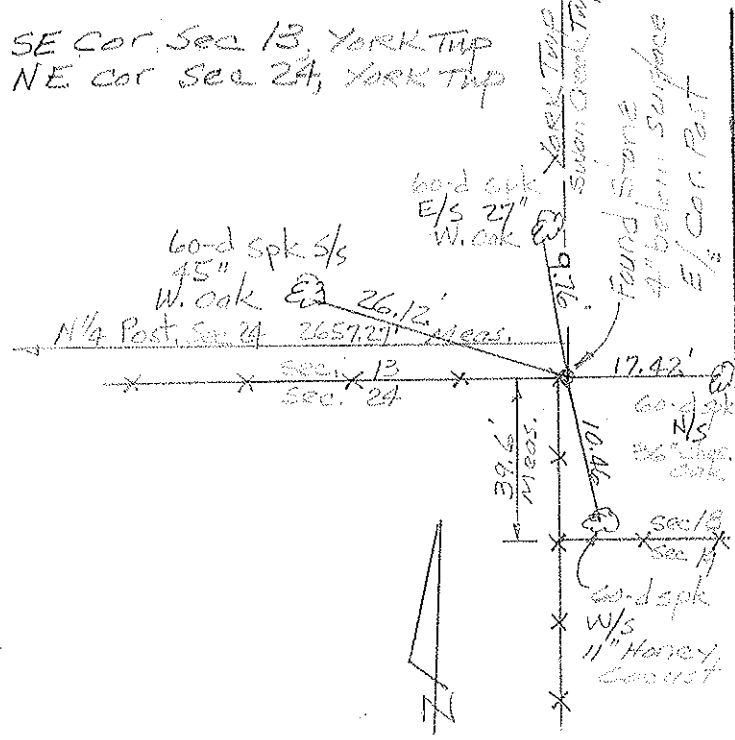 SE Cor. Sec 13, YORK TWP
NE cor Sec 24, YORK TWP
YORK TWP
Swan Creek Twp
Found Stone
4" below Surface
E/ Cor. Post
60-d spk
E/S 27"
W. Oak
9.76'
60-d spk S/S
45"
W. Oak
26.12'
N 1/4 Post, Sec 24 2657.27' Meas.
Sec. 13
Sec. 24
17.42'
60-d spk
N/S
Oak
39.6'
Meas.
10.46
Sec 18
Sec
60-d spk
W/S
11" Honey
Locust
N